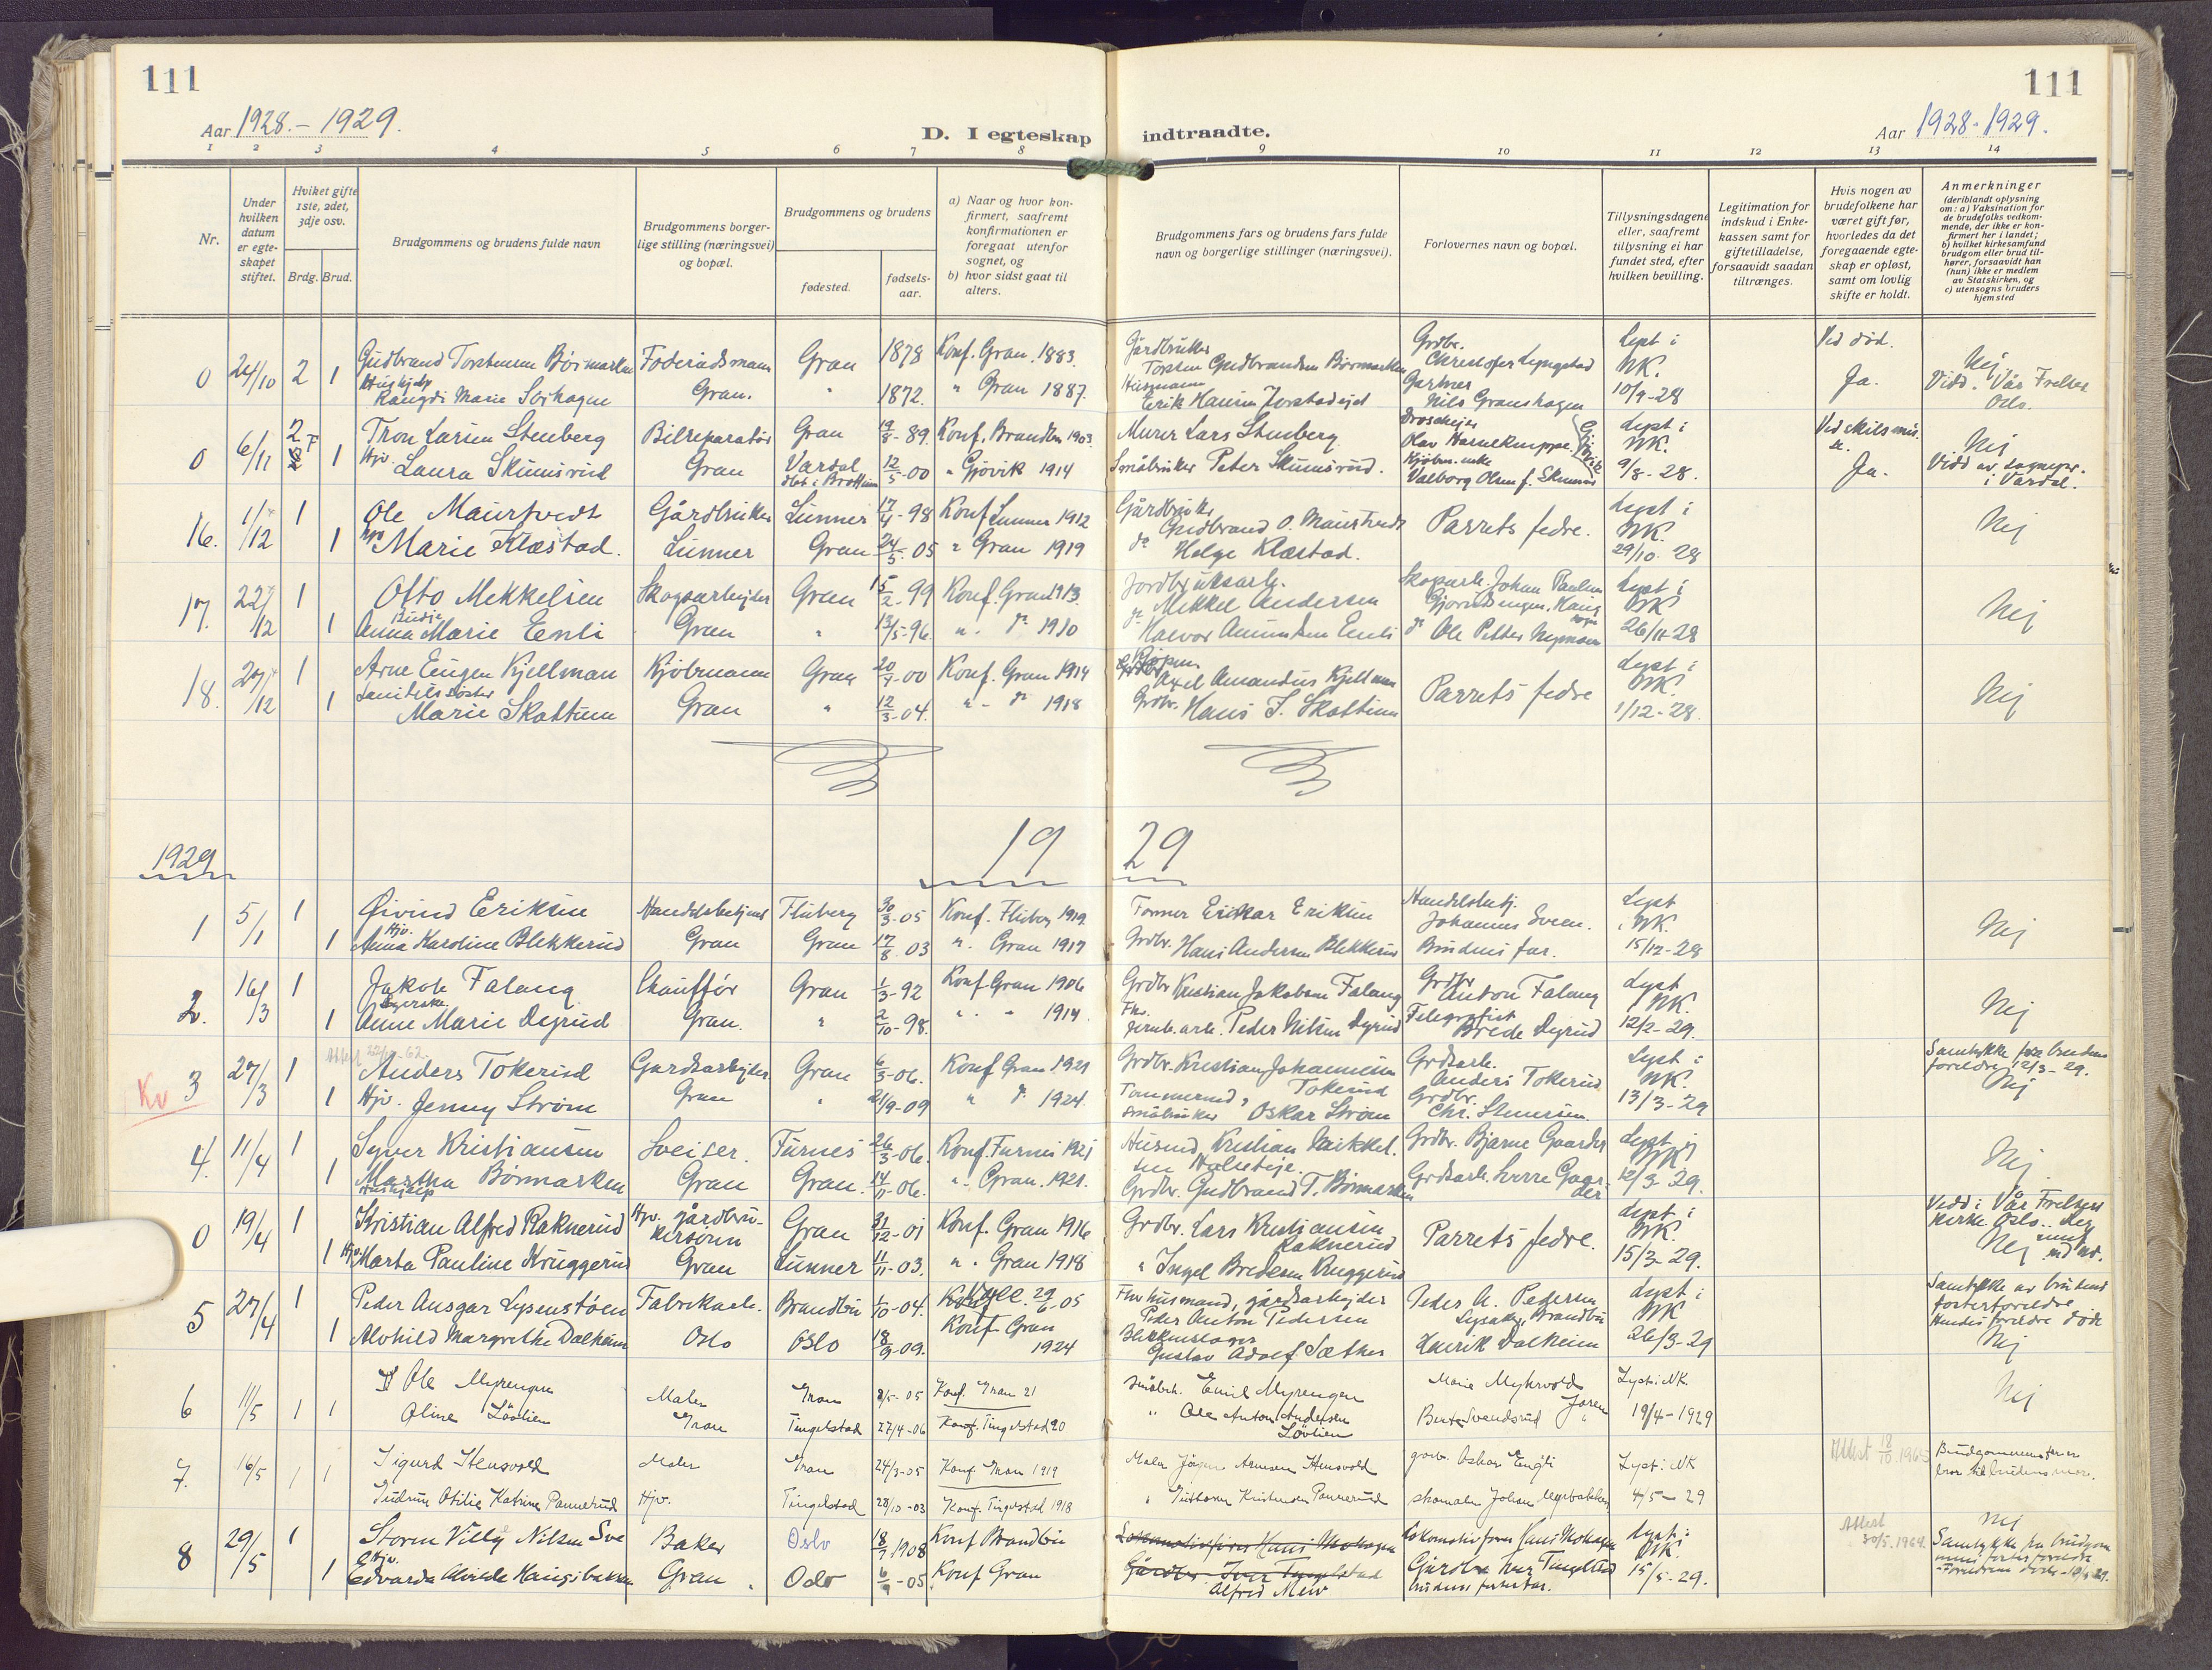 111
111
Aar 1928.-1929.
D. I egteskap indtraadte.
Aar 1928-1929.
1 2 3 4 5 6 7 8 9 10 11 12 13 14
Nr.
Under hvilken datum er egte-skapet stiftet.
Hviket gifte 1ste, 2det, 3dje osv.
Brdg. Brud.
Brudgommens og brudens fulde navn
Brudgommens borger-lige stilling (næringsvei) og bopæl.
Brudgommens og brudens
fødested.
fødsels-aar.
a) Naar og hvor kon-firmert, saafremt konfirmationen er foregaat utenfor sognet, og
b) hvor sidst gaat til alters.
Brudgommens fars og brudens fars fulde navn og borgerlige stillinger (næringsvei).
Forlovernes navn og bopæl.
Tillysningsdagene eller, saafremt tillysning ei har fundet sted, efter hvilken bevilling.
Legitimation for indskud i Enke-kassen samt for giftetilladelse, forsaavidt saadan tiltrænges.
Hvis nogen av brudefolkene har været gift før, hvorledes da det foregaaende egte-skap er opløst, samt om lovlig skifte er holdt.
Anmerkninger (deriblandt oplysning om: a) Vaksination for de brudefolks vedkom-mende, der ikke er kon-firmert her i landet; b) hvilket kirkesamfund brudgom eller brud til-hører, forsaavidt han (hun) ikke er medlem av Statskirken, og c) utensogns bruders hjemsted
0 24/10 2 Gudbrand Torstensen Børmarken Foderaadsmann Gran 1878 Konf. Gran 1883. Gårdbruker Torsten Gudbrandsen Børmarken Grdbr. Christofer Lyngstad Lyst i NK. Ved død. Nej
1 Hushjelp Rangdi Marie Soihagen Gran. " 1872. " Gran 1887. Husmann Erik Hansen Gartner Nils Granshagen 10/9-28 Ja. Vidd. Vår Frelser Oslo.
0 6/11 2 Tron Larsen Stenberg Bilreparatør Gran 19/8-89. Konf. Brandbu 1903. Murer Lars Stenberg Olav Lyst i NK. Ved skilsmisse. Nej
1 Hjv. Laura Skumsrud Gran Vardal 12/5-00 " Gjøvik 1914 Småbruker Peter Skumsrud. Valborg Olsen f. Skumsrud 9/8-28. Ja. Vidd av sognepr. i Vardal.
16. 1/12 1 Ole Maurtvedt Gårdbruker Lunner 17/4-98 Konf Lunner 1912 Gårdbruker Gudbrand O. Maurtvedt Parrets fedre. Lyst i NK. Nej
1 Hjv. Marie Klæstad. Lunner Gran 24/5.05 " Gran 1919 do Helge Klæstad. 29/10-28
17. 22/12 1 Otto Mekkelsen Skogsarbejder Gran 15/2-99 Konf. Gran 1913. Jordbruksarb. Mekkel Andersen Skogarb. Johan Paulsen Lyst i NK Nej
1 Budeie Anna Marie Eenli Gran " 13/5-96. ". do 1910 do Halvor Amundsen Eenli do Ole Petter Nymoen 26/11-28
18. 27/12 1 Arne Eugen Kjellman Kjøbmann Gran 20/7-00 Konf. Gran 1914 Kjøpm. Axel Amandus Kjellman Parrets fedre Lyst i NK. Nej
1 Marie Skattum Gran " 12/3-04. "- do 1918 Grdbr. Hans J. Skattum 1/12-28.
1929
19 29
1 5/1 1 Øivind Eriksen Handelsbetjent Fluberg 30/3-05 Konf. Fluberg 1919 Tømmer Erikar Eriksen Handelsbetj. Johannes Sveen. Lyst i NK. Nej
1 Hjv. Anna Karoline Blekkerud Gran Gran 17/8.03 ". Gran 1917 Grdbr. Hans Andersen Blekkerud Brudens far. 15/12-28
2. 16/3 1 Jakob Falang Chauffør Gran 1/3-92 Konf Gran 1906 Grdbr Kristian Jakobsen Falang Grdbr Anton Falang Lyst i NK. Nej
1 Syerske Anne Marie Dyrud Gran. " 2/10-98. ". " 1914. Jernb. arb. Peder Nilsen Dyrud Telegrafist Brede Dyrud 12/2-29.
Attest
Kv 3 27/3 1 Anders Tokerud Gardsarbejder Gran 6/3-06. Konf Gran 1921 Grdbr. Kristian Johannesen Tokerud Grdsarb. Anders Tokerud Lyst i NK. Samtykke fra brudens foreldre 12/3-29. Nej
1 Hjv. Jenny Strøm Gran " 21/9-09 " do 1924. småbruker Oskar Strøm Grdbr. Chr. Stenersen 13/3-29
4. 11/4 1 Syver Kristiansen Sveiser. Furnes 26/3-06. Konf. Furnes 1921 Husmd. Kristian Mikkelsen Grdbr. Bjarne Gaarder Lyst i NK. Nej
1 Martha Børmarken Hushjelp Gran Gran. 14/11-06. ". Gran. 1921. Grdbr. Gudbrand T. Børmarken Grdsarb. Sverre Gaarder 12/3-29.
0 19/4 1 Kristian Alfred Raknerud Hjv. gårdbrukersønn Gran 31/12-01 Konf. Gran 1916 Grdbr. Lars Kristiansen Raknerud Parrets fedre. Lyst i NK. Vidd i Vår Frelsers kirke Oslo. Nej
1 Hjv Marta Pauline Kruggerud Gran Lunner 11/11-03. ". Gran 1918 " Ingel Bredesen Kruggerud 15/3-29.
5 27/4 1 Peder Ansgar Lysenstøen Fabrikarb. Brandbu 1/10-04. 29/6-05 Fhv husmand, gårdsarbejder Peder Anton Pedersen Peder A. Pedersen Brandbu Lyst i NK Samtykke av brudens fosterforeldre. Hendes foreldre døde
1 Alvhild Margrethe Dalheim Oslo Oslo 18/9-09. Konf Gran 1924 Blikkenslager Gustav Adolf Sæther Henrik Dalheim 26/3-29 Nej
6 11/5 1 1 Ole Myrengen Maler Gran 8/5-05 Konf. Gran 21 Småbr. Emil Myrengen Marie Myhrvold Jaren Lyst i NK. Nej
Oline Løvlien Gran Tingelstad 27/4-06 Konf. Tingelstad 20 " Ole Anton Andersen Løvlien Berte Svendsrud " 19/4-1929
7. 16/5 1 1 Sigurd Stensvold Maler Gran 24/3-05 Konf. Gran 1919 Maler Jørgen Arnesen Stensvold gårdbr. Oskar Engli Lyst i NK Attest 18/10 1965 Brudgommens far er bror til brudens mor.
Gudrun Otilie Katrine Pannerud Hjv. Tingelstad 28/10-03 Konf. Tingelstad 1918 " Guttorm Kristensen Pannerud skomaker Johan Myrbakken 4/5-29
8 29/5 1 Storm Villy Nilsen Sve Baker Oslo 18/7 1908 Konf Brandbu Lokomotivfører Hans Mohagen Lokomotivfører Hans Mohagen Lyst i NK. Attest 30/5. 1964. Nej Samtykke fra brudgommens foster foreldre
1 Hjv. Edvarda Alvilde Haugsbakken Gran. Oslo 6/9-05 Konf Gran Gårdbr. Iver Tingelstad Alfred Gårdbr Iver Tingelstad brudens fosterfar. 15/5-29.